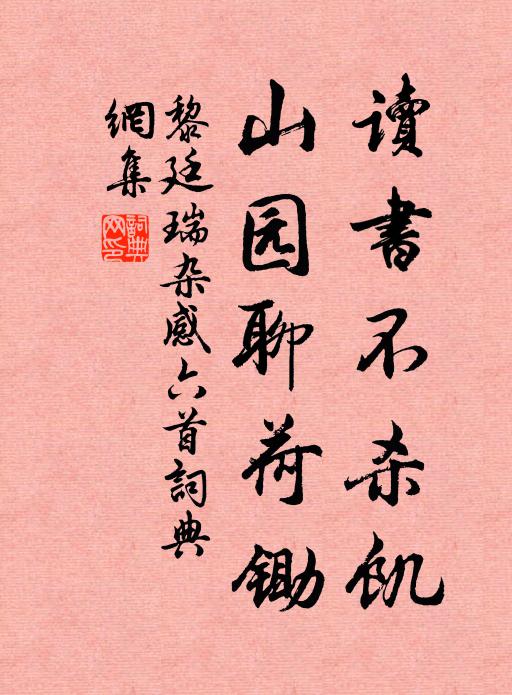 讀書不杀飢
山园聊荷鋤
黎廷瑞杂感六首詞典
網集
詞典网印